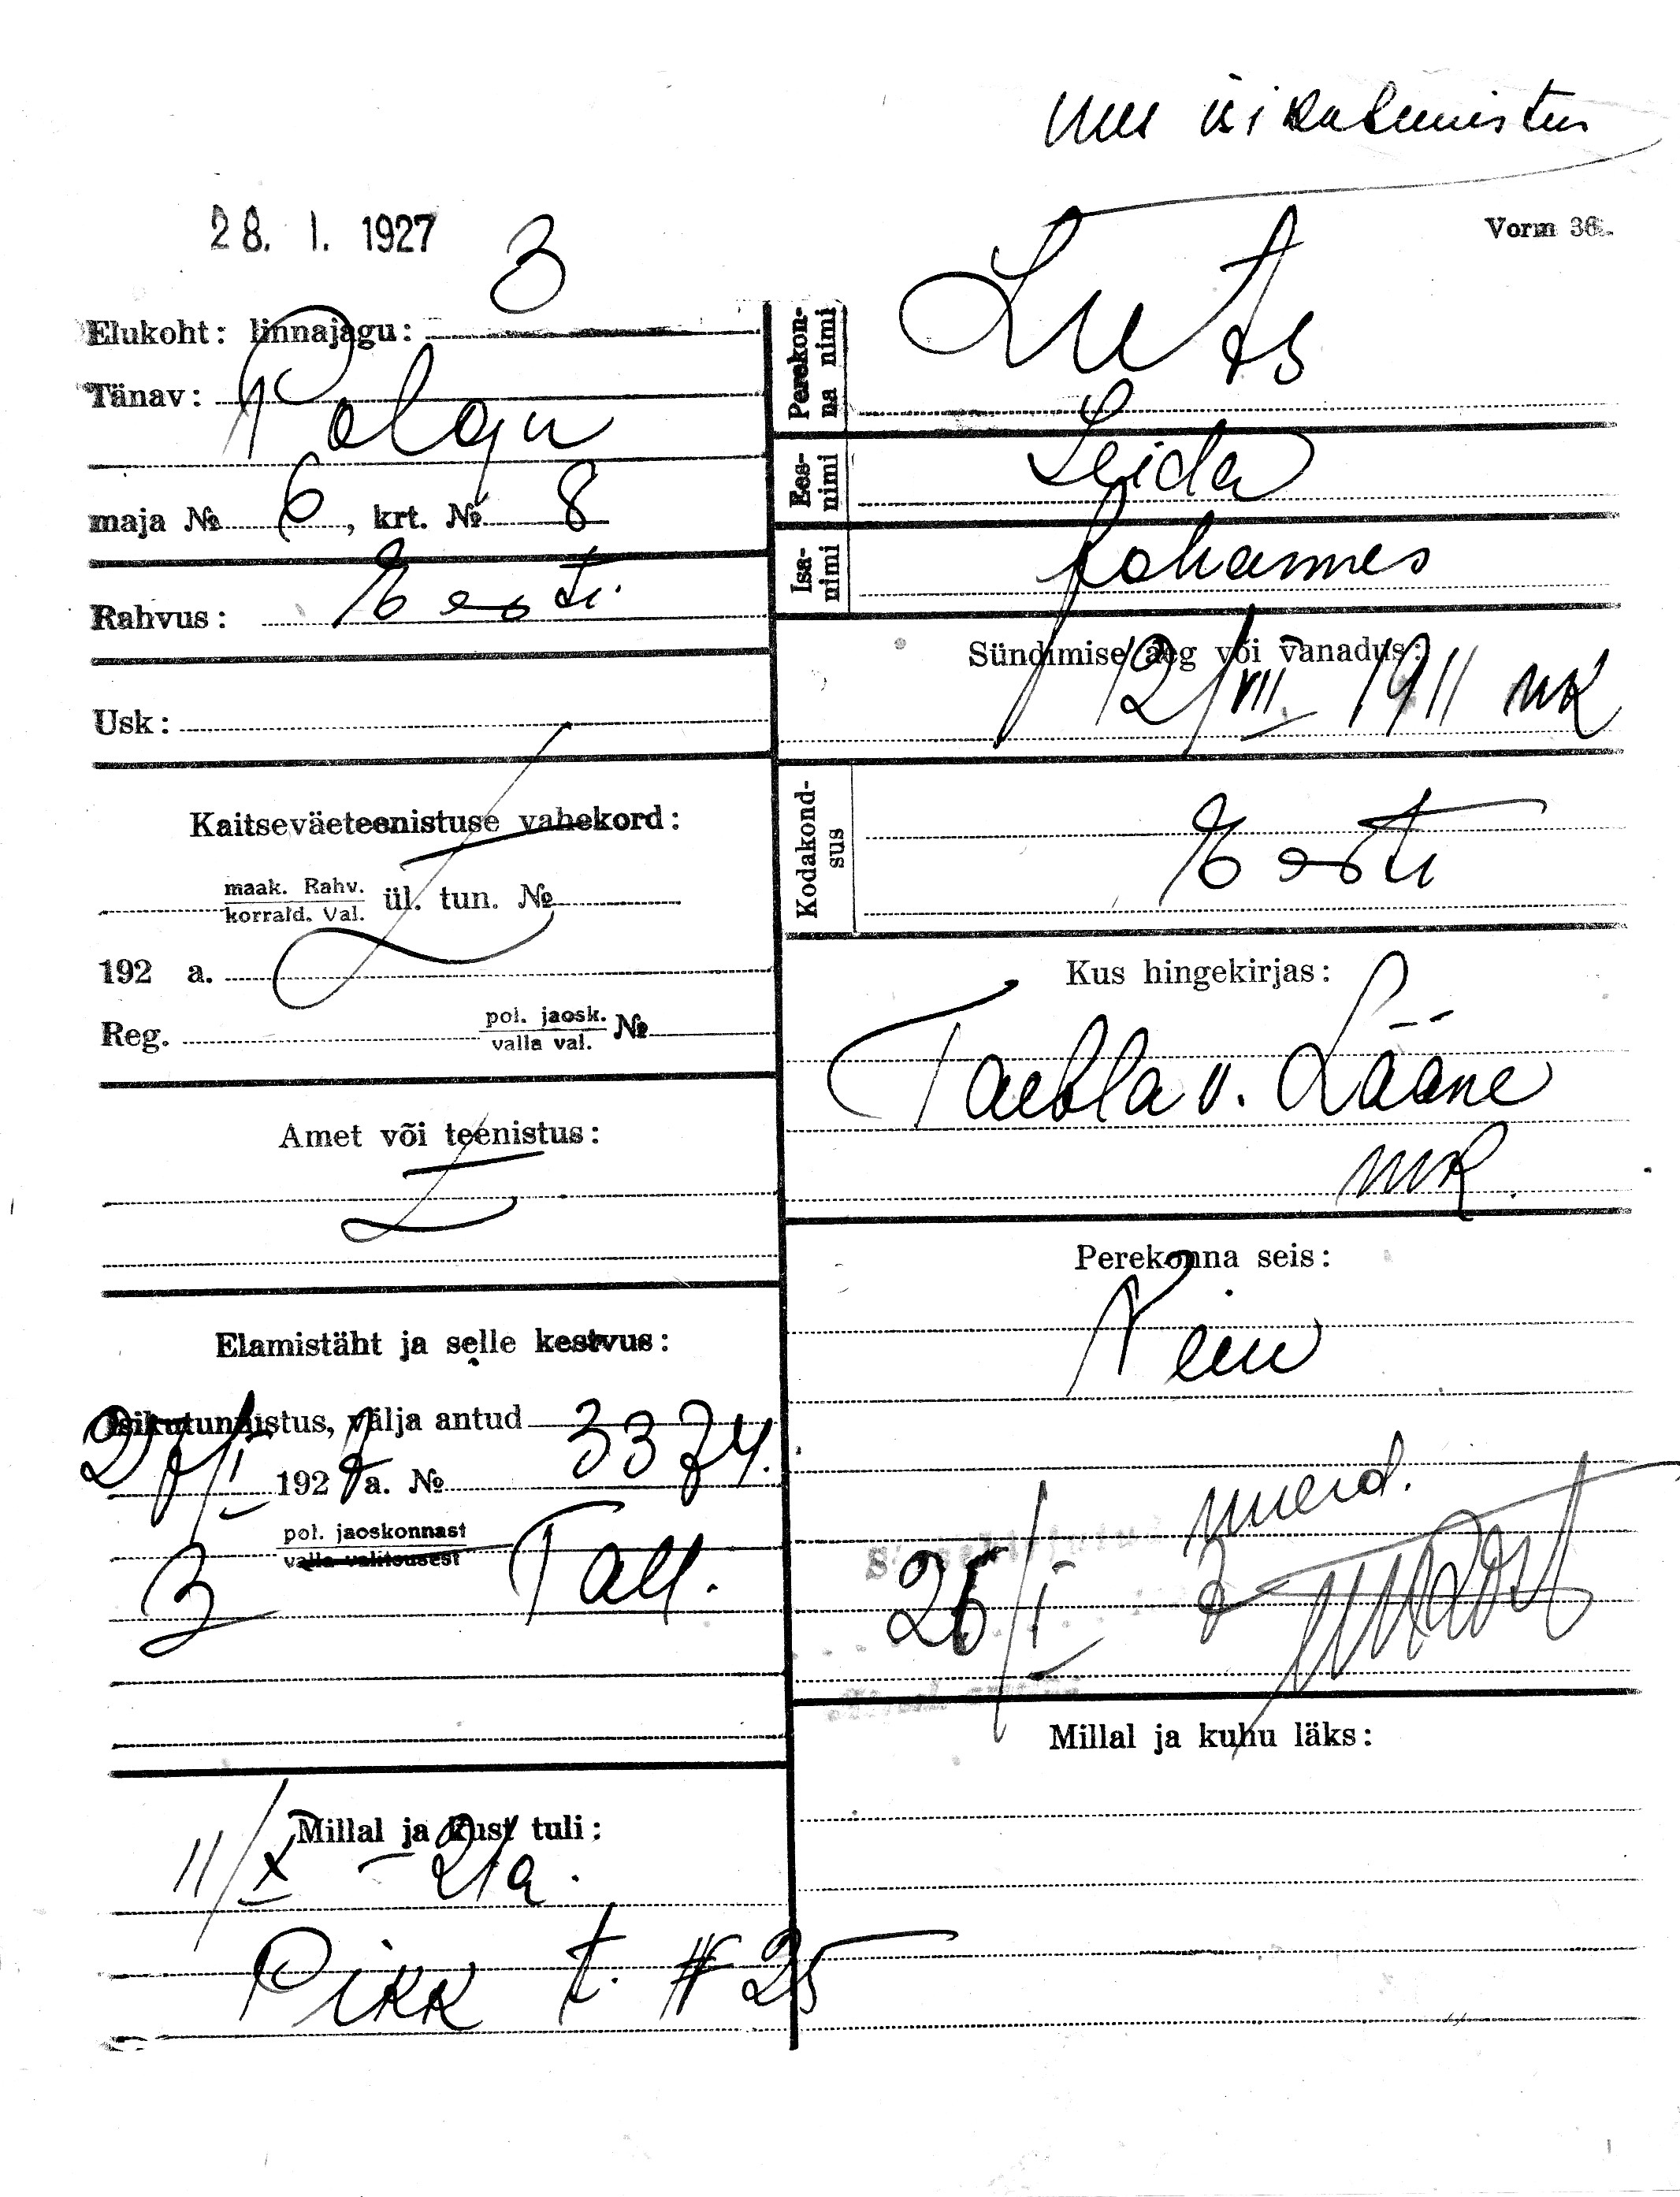 uus isikutunnistus
28. I. 1927
Vorm 36.
Elukoht: linnajagu: 3
Tänav: Polgu
maja № 6, krt. № 8
Rahvus: Eesti.
Usk:
Kaitseväeteenistuse vahekord:
maak. Rahv.
korrald. Val. ül. tun. №
192 a.
Reg. pol. jaosk.
valla val. №
Amet või teenistus:
Elamistäht ja selle kestvus:
Isikutunnistus, välja antud
27/I 1927 a. № 3374.
pol. jaoskonnast
valla valitsusest
3 Tall.
Millal ja kust tuli:
11/X - 21 a.
Pikk t. # 25
Perekonna nimi Luts
Eesnimi Leida
Isanimi Johannes
Sündimise aeg või vanadus:
12/VII 1911 mk
Kodakondsus Eesti
Kus hingekirjas:
Taebla v. Lääne
mk.
Perekonna seis:
Neiu
25/I
Millal ja kuhu läks: